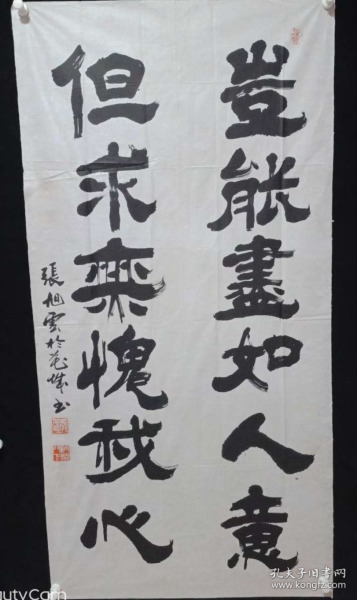 豈能盡如人意
但求無愧我心
張旭雲於花城書
孔夫子旧书网
www.kongfz.com
utyCam